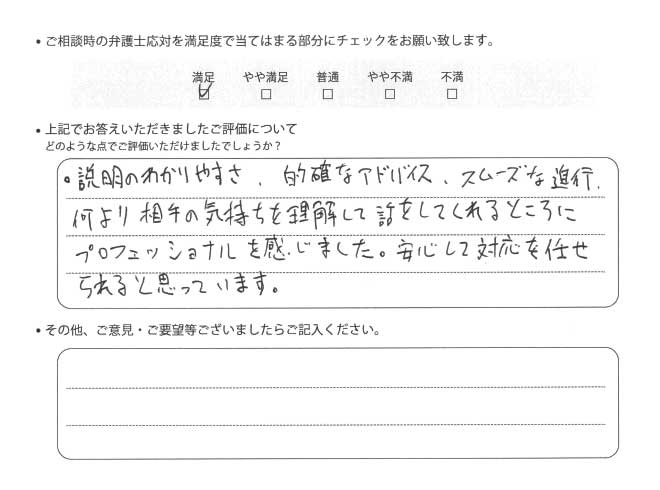 ・ご相談時の弁護士応対を満足度で当てはまる部分にチェックをお願い致します。
満足 やや満足 普通 やや不満 不満
☑ □ □ □ □
・上記でお答えいただきましたご評価について
どのような点でご評価いただけましたでしょうか？
。説明のわかりやすさ、的確なアドバイス、スムーズな進行、
何より相手の気持ちを理解して話をしてくれるところに
プロフェッショナルを感じました。安心して対応を任せ
られると思っています。
・その他、ご意見・ご要望等ございましたらご記入ください。